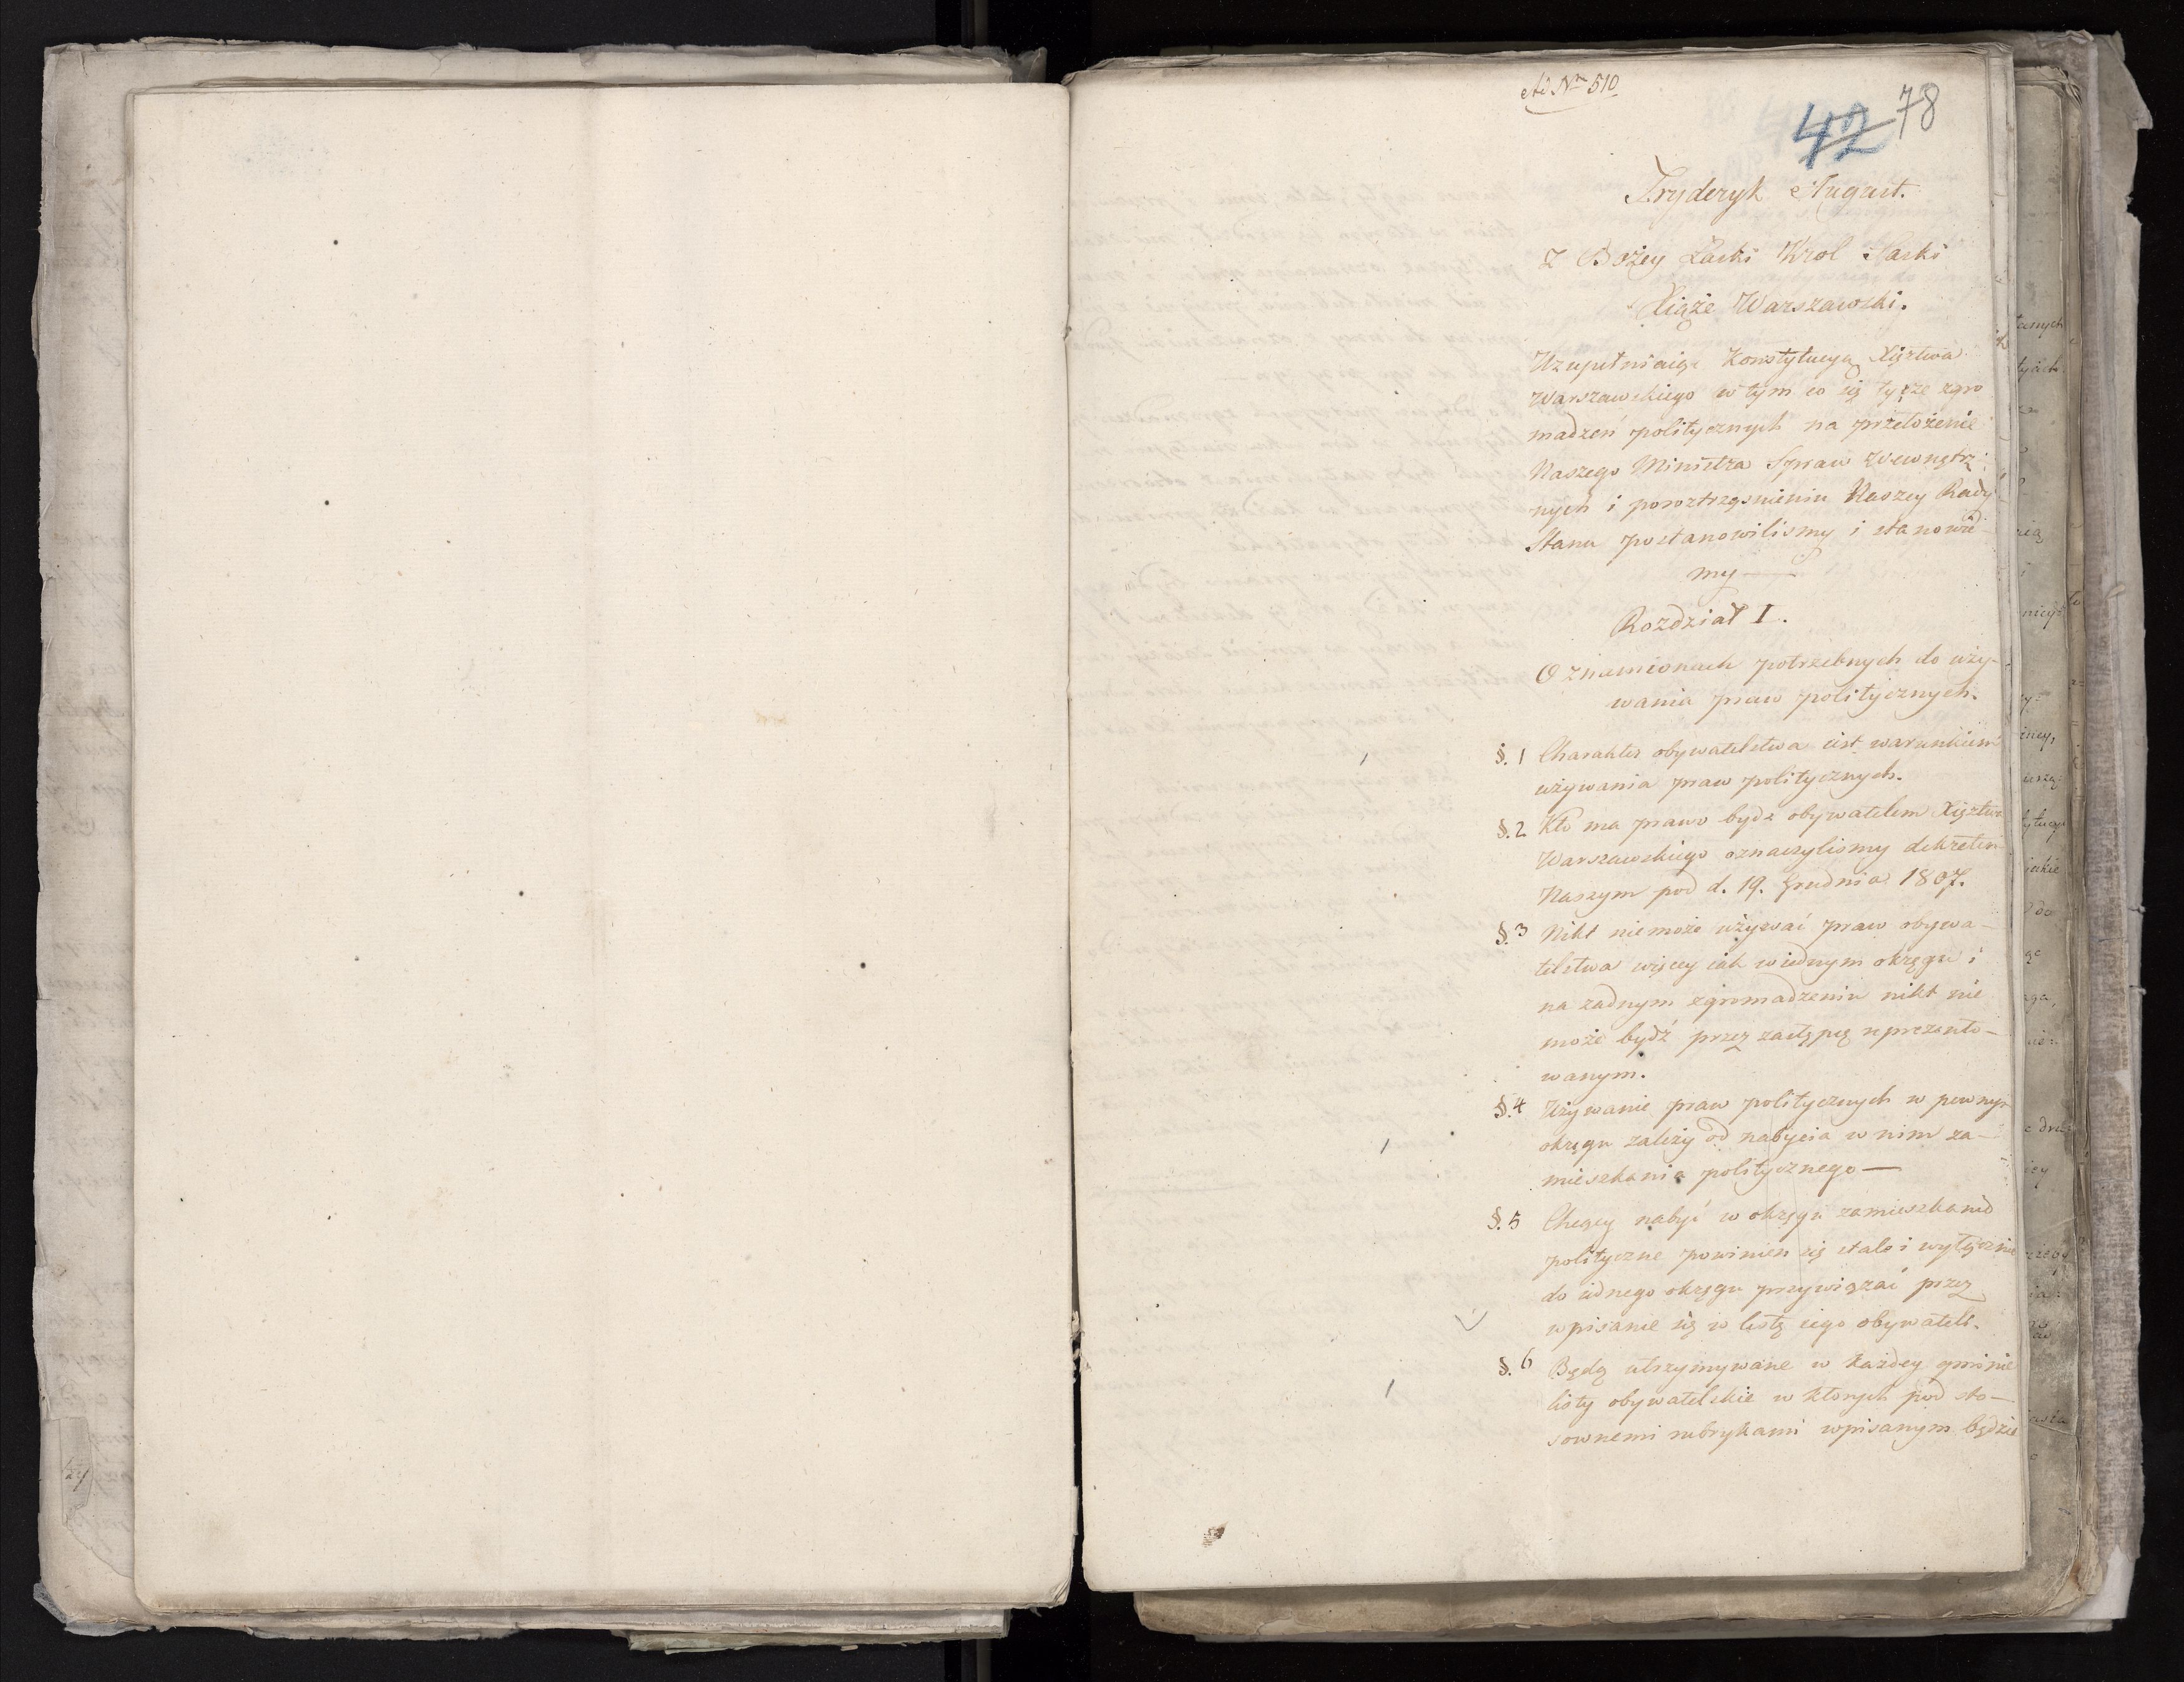 Ad Nr 510
42 78
Fryderyk August.
Z Bożey Łaski Krol Saski
Xiąże Warszawski.
Uzupełniaiąc Konstytucyą Xięztwa
Warszawskiego w tym co się tycze zgro
madzeń politycznych na przełożenie
Naszego Ministra Spraw Wewnętrz
nych i poroztrząśnieniu Naszey Rady
Stanu postanowilismy i stanowie
my —
Rozdział I.
O znamionach potrzebnych do uży-
wania praw politycznych.
§. 1 Charakter obywatelstwa iest warunkiem
używania praw politycznych.
§. 2 Kto ma prawo bydz obywatelem Xięztwa
Warszawskiego oznaczylismy dekretem
Naszym pod d. 19. Grudnia 1807.
§. 3 Nikt niemoże używać praw obywa-
telstwa więcey iak w iednym okręgu i
na żadnym zgromadzeniu nikt nie
może bydź przez zastępcę reprezento-
wanym.
§. 4 Używanie praw politycznych w pewnym
okręgu zależy od nabycia w nim za-
mieszkania politycznego —
§. 5 Chcący nabyć w okręgu zamieszkanie
polityczne powinien się stale i wyłącznie
do iednego okręgu przywiązać przez
wpisanie się w listę iego obywateli.
§. 6 Będą utrzymywane w każdey gminie
listy obywatelskie w ktorych pod sto-
sownemi rubrykami wpisanym będzie